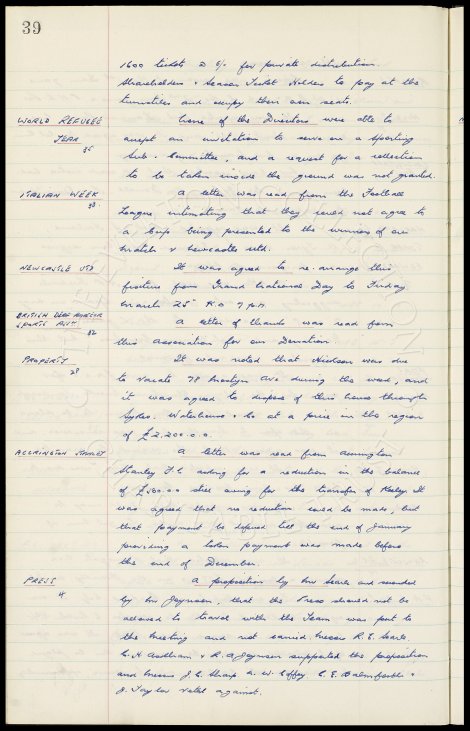 39
1600 tickets @ 6/- for private distribution.
Shareholders & Season Ticket Holders to pay at the
turnstiles and occupy their own seats.
WORLD REFUGEE
YEAR
None of the Directors were able to
accept an invitation to serve on a Sporting
Sub-Committee, and a request for a collection
to be taken inside the ground was not granted.
ITALIAN WEEK
38
A letter was read from the Football
League intimating that they could not agree to
a Cup being presented to the winners of our
match v Newcastle Utd.
NEWCASTLE UTD
It was agreed to re-arrange this
fixture from Grand National Day to Friday
March 25th K.O. 7 p.m.
BRITISH DEAF AMATEUR
SPORTS ASST.
32
A letter of thanks was read from
this Association for our Donation.
PROPERTY
28
It was noted that Hickson was due
to vacate 78 Mostyn Ave during the week, and
it was agreed to dispose of this house through
Sykes. Waterhouse & Co at a price in the region
of £2,200.0.0.
ACCRINGTON STANLEY
A letter was read from Accrington
Stanley F.C. asking for a reduction in the balance
of still owing for the transfer of Keeley. It
was agreed that no reduction could be made, but
that payment be deferred till the end of January
providing a token payment was made before
the end of December.
PRESS
4
A proposition by Mr Searle and seconded
by Mr Joynson, that the Press should not be
allowed to travel with the Team was put to
the meeting and not carried. Messrs R.E. Searle.
C.H. Askham & R.A. Joynson supported the proposition
and Messrs J.C. Sharp. A.W. Coffey. C.E. Balmforth &
J. Taylor voted against.